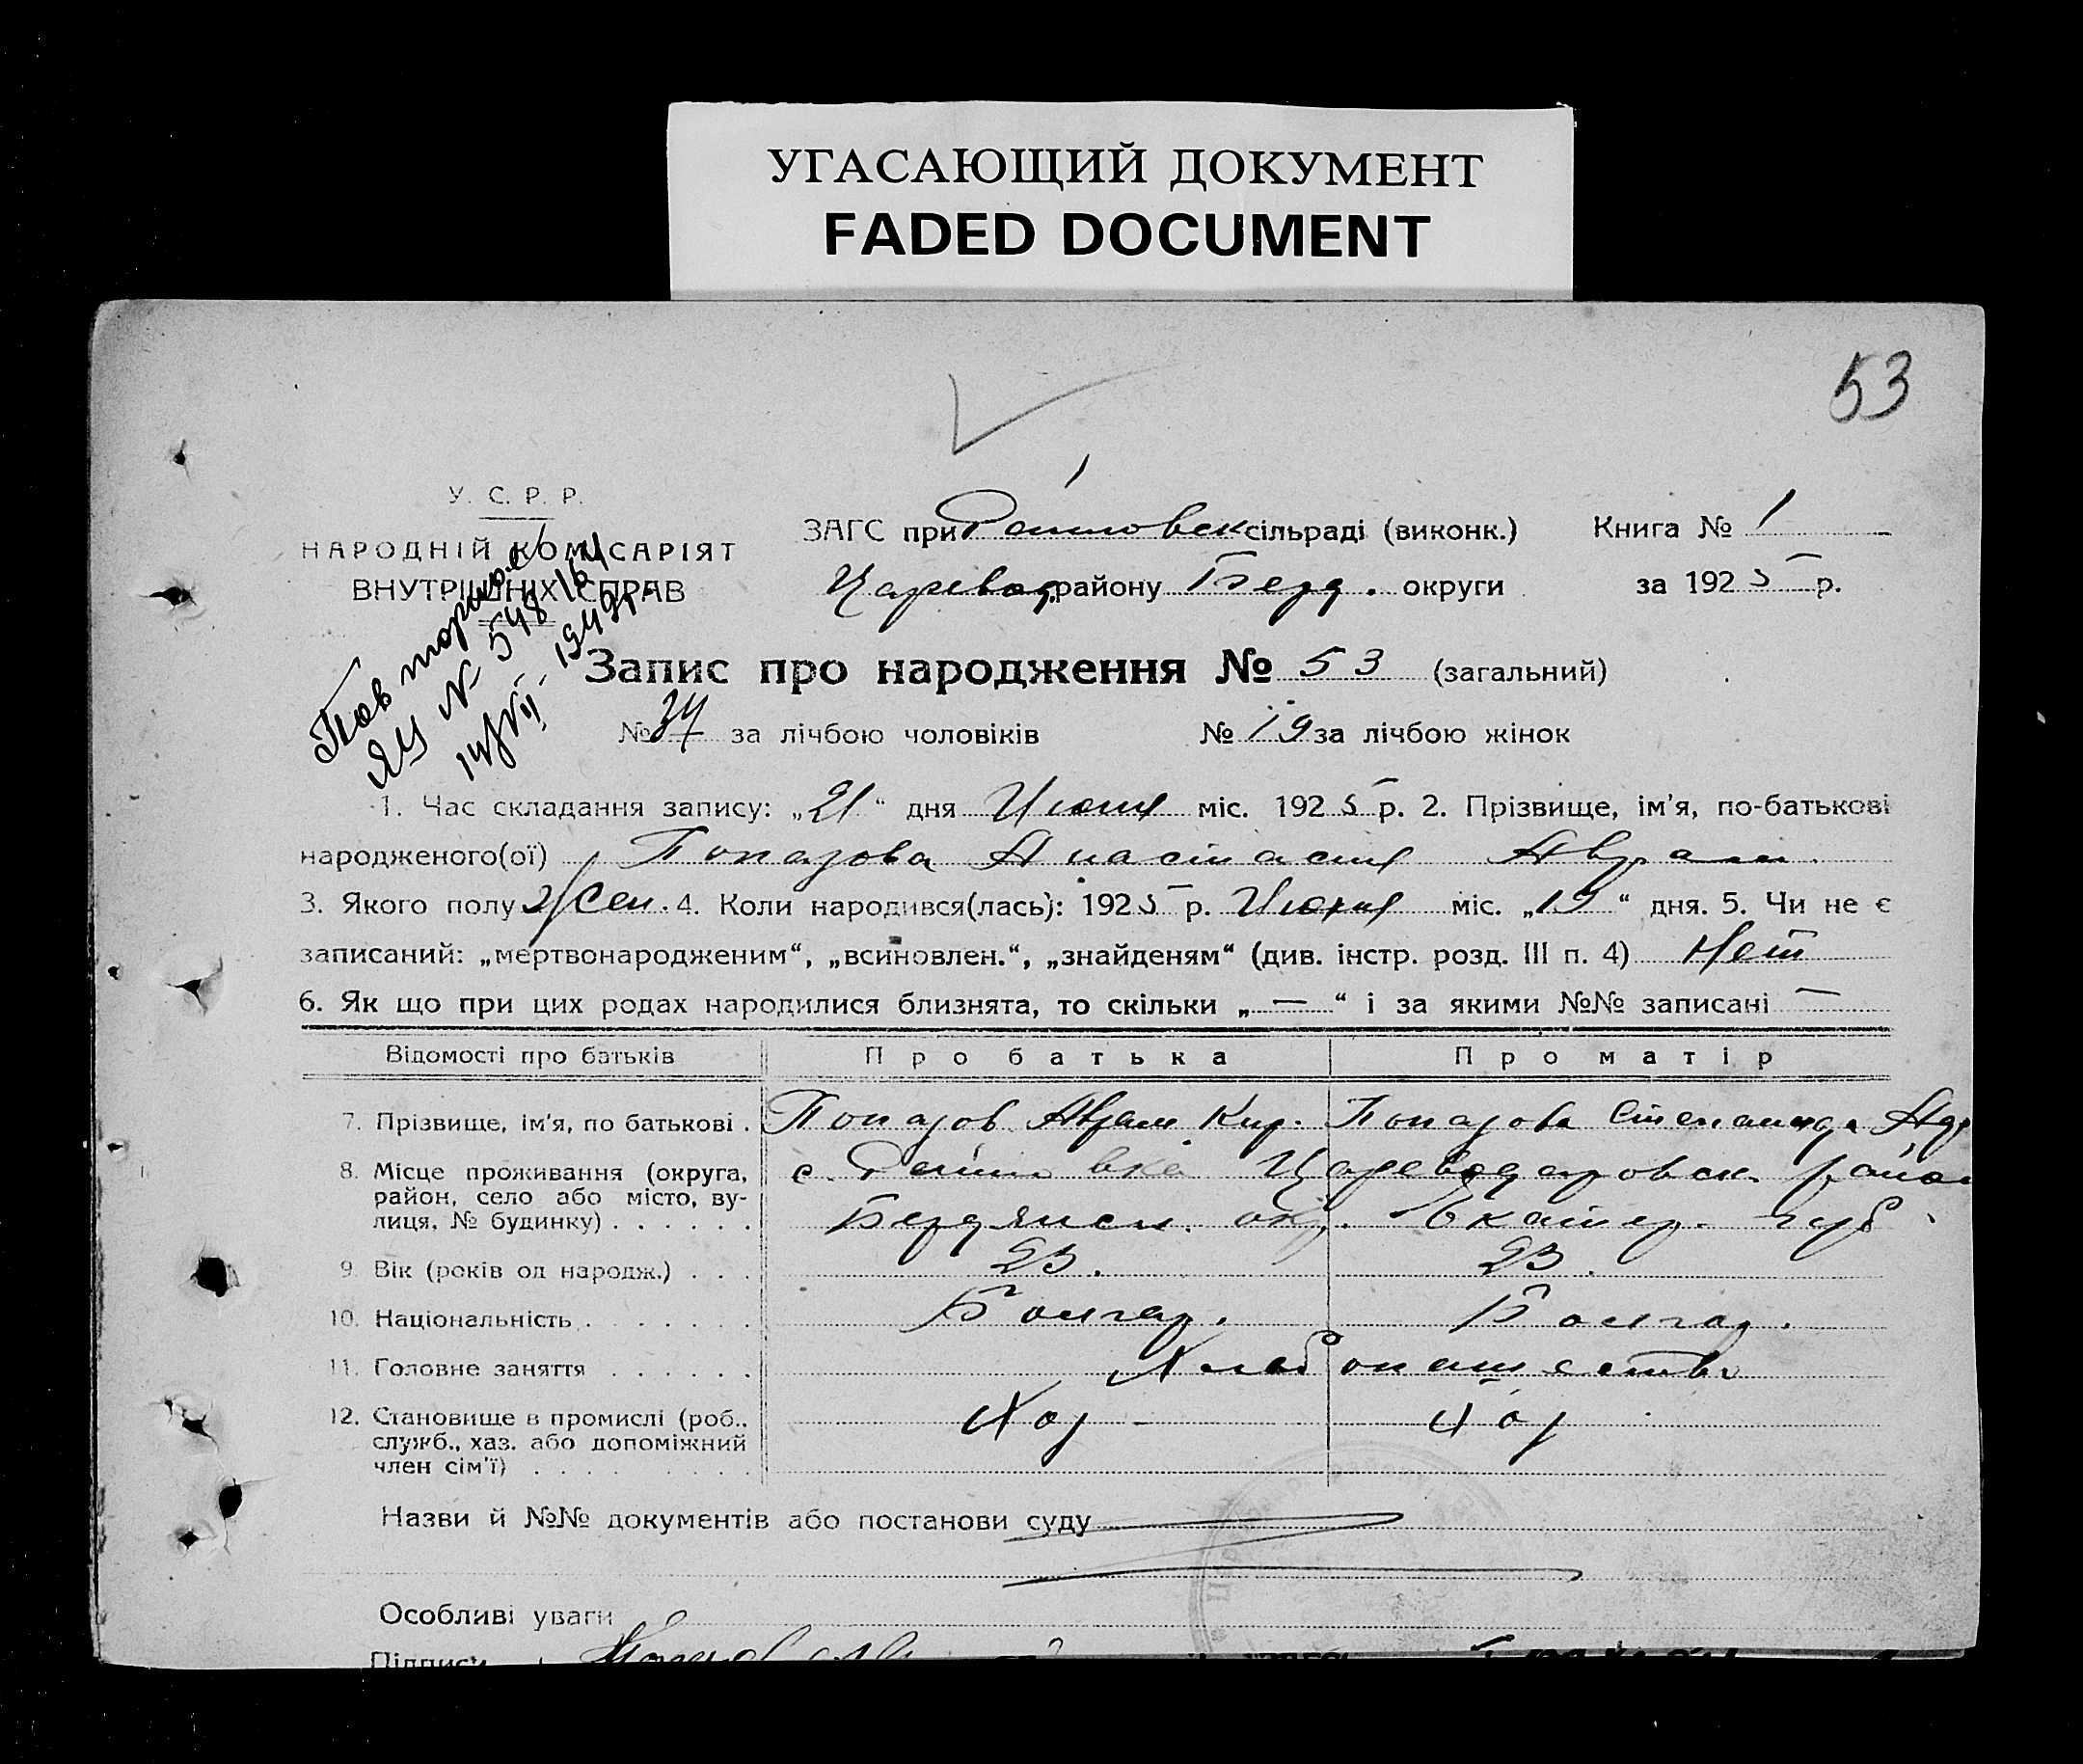 УГАСАЮЩИЙ ДОКУМЕНТ
FADED DOCUMENT
53
У. С. Р. Р.
НАРОДНІЙ КОМІСАРІЯТ
ВНУТРІШНІХ СПРАВ
1
ЗАГС при сільраді (виконк.) Книга № 1
Царевод. району Берд. округи за 1925 р.
Запис про народження № 53 (загальний)
№ за лічбою чоловіків № 19 за лічбою жінок
1. Час складання запису: „21“ дня Июня міс. 1925 р. 2. Прізвище, ім’я, по-батькові
народженого(ої) Попазова Анастасия Аврам.
3. Якого полу Жен. 4. Коли народився(лась): 1925 р. Июня міс. „19“ дня. 5. Чи не є
записаний: „мертвонародженим“, „всиновлен.“, „знайденям“ (див. інстр. розд. III п. 4) Нет
6. Як що при цих родах народилися близнята, то скільки „—“ і за якими №№ записані —
Відомості про батьків Про батька Про матір
7. Прізвище, ім’я, по батькові . Попазов Аврам Кир. Попазова Степанида
8. Місце проживання (округа, с. Цареводаровск. район
район, село або місто, ву-
лиця, № будинку) . . . . . . Бердянск. окр. Екатер. губ
9. Вік (років од народж.) . . . 23. 23.
10. Національність . . . . . . . Болгар. Болгар.
11. Головне заняття . . . . . . Хлебопашество
12. Становище в промислі (роб., Хоз - Хоз
служб., хаз. або допоміжний
член сім’ї) . . . . . . . .
Назви й №№ документів або постанови суду
Особливі уваги
Підписи
Повторное
ЯЦ № 548164
14/VII- 1949г.